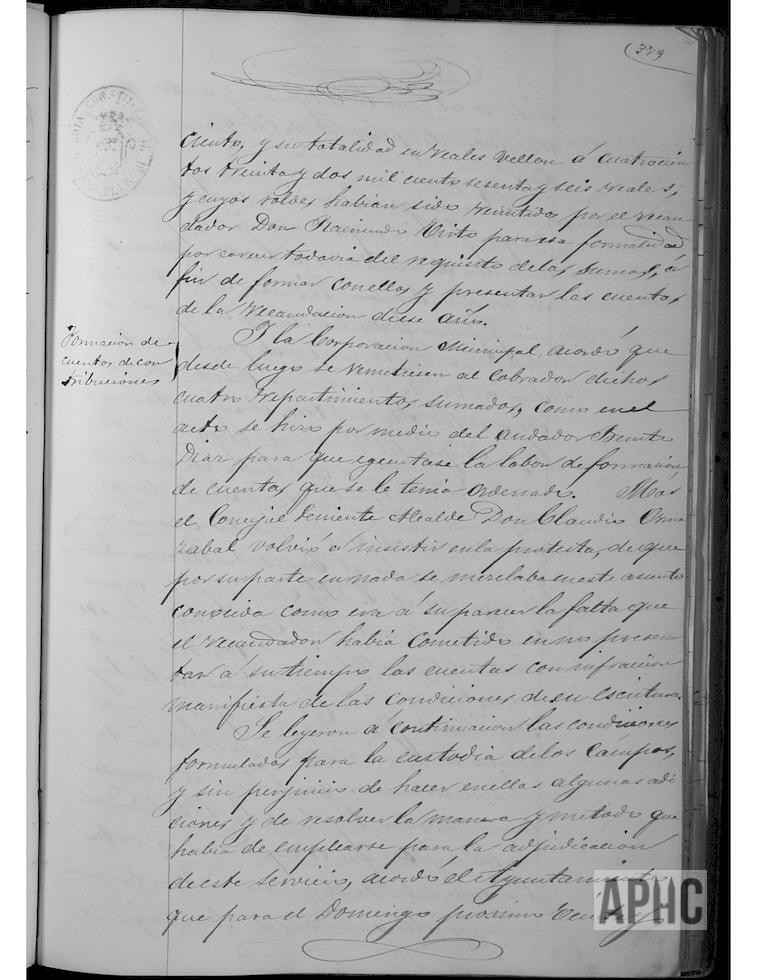 (379
ciento, y su totalidad en reales vellon á cuatrocien
tos treinta y dos mil ciento sesenta y seis reales;
y cuyos roldes habian sido remitidos por el recau
dador Don Raimundo Virto para esa formalidad
por carecer todavia del requisito de las sumas, á
fin de formar con ellos y presentar las cuentas
de la recaudacion de ese año.
Formacion de
cuentas de con
tribuciones
Y la Corporacion Municipal, acordó que
desde luego se remitiesen al cobrador dichos
cuatro repartimientos sumados, como en el
acto se hizo por medio del andador Benito
Diaz para que egecutase la labor de formacion
de cuentas que se le tenia ordenado. Mas
el Concejal Teniente Alcalde Don Claudio Orma
zabal volvió á insistir en la protesta, de que
por su parte en nada se mezclaba en este asunto
conocida como era á su parecer la falta que
el recaudador habia cometido en no presen
tar á su tiempo las cuentas con infraccion
manifiesta de las condiciones de su escritura.
Se leyeron á continuacion las condiciones
formuladas para la custodia de los Campos,
y sin perjuicio de hacer en ellas algunas adi
ciones y de resolver la manera y metodo que
habia de emplearse para la adjudicacion
de este servicio, acordó el Ayuntamiento
que para el Domingo próximo
APHC